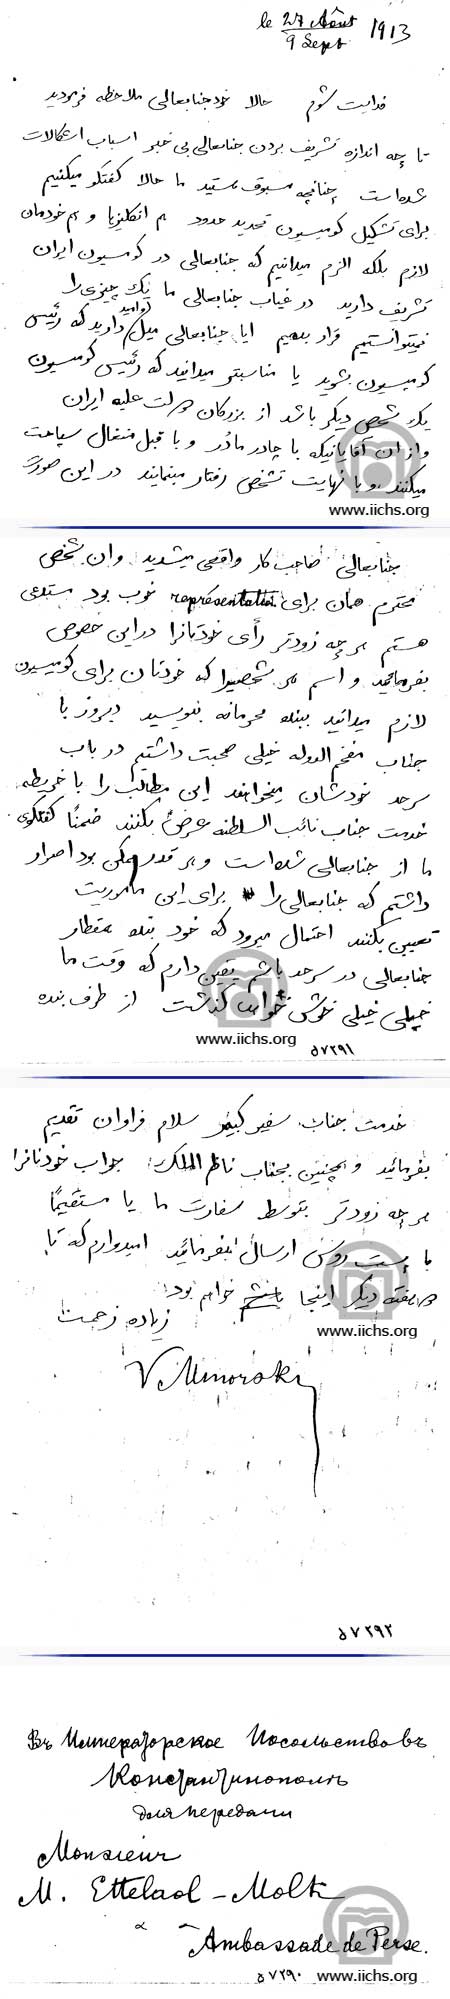 le 27 Août 1913
9 Sept
فدایت شوم حالا خود جنابعالی ملاحظه فرمودید
تا چه اندازه تشریف بردن جنابعالی بی خبر اسباب اشکالات
شده است چنانچه مسبوق هستید ما حالا گفتگو میکنیم
برای تشکیل کومیسیون تحدید حدود هم انگلیزها و هم خودمان
لازم بلکه الزم میدانیم که جنابعالی در کومسیون ایران
تشریف دارید در غیاب جنابعالی ما یک چیزی را
نمیتوانستیم قرار بدهیم ایا جنابعالی میل دارید که رئیس
کومیسیون بشوید یا مناسبتر میدانید که رئیس کومیسیون
یک شخص دیگر باشد از بزرگان دولت علیه ایران
وازان آقایانیکه با چادر مادر و با قبل منقل سیاحت
میکنند و با نهایت تشخص رفتار مینمایند در این صورت
www.iichs.org
جنابعالی صاحب کار واقعی میشدید وان شخص
محترم همان برای representation خوب بود مستدعی
هستم هر چه زودتر رأی خودتانرا دراین خصوص
بفرمائید و اسم هر شخصیرا که خودتان برای کومیسیون
لازم میدانید ببنده محرمانه بنویسید دیروز با
جناب مفخم الدوله خیلی صحبت داشتیم در باب
سرحد خودشان میخواهند این مطالب را با خریطه
خدمت جناب نائب السلطنه عرض بکنند ضمناً گفتگوی
ما از جنابعالی شده است و هر قدر ممکن بود اصرار
داشتم که جنابعالی را برای این ماموریت
تعیین بکنند احتمال میرود که خود بنده همقطار
جنابعالی در سرحد باشم یقین دارم که وقت ما
خیلی خیلی خوش خواهد گذشت از طرف بنده
www.iichs.org
۵۷۲۹۱
خدمت جناب سفیر کبیر سلام فراوان تقدیم
بفرمائید و همچنین بجناب ناظم الملک جواب خودتانرا
هر چه زودتر بتوسط سفارت ما یا مستقیماً
با پست روس ارسال بفرمائید امیدوارم که تا
هفته دیگر اینجا خواهم بود
زیاده زحمت
www.iichs.org
V Minorski
۵۷۲۹۲
Въ Императорское Посольство въ
Константинополѣ
для передачи
Monsieur
M. Ettelaol-Molk
à
Ambassade de Perse.
۵۷۲۹۰
www.iichs.org